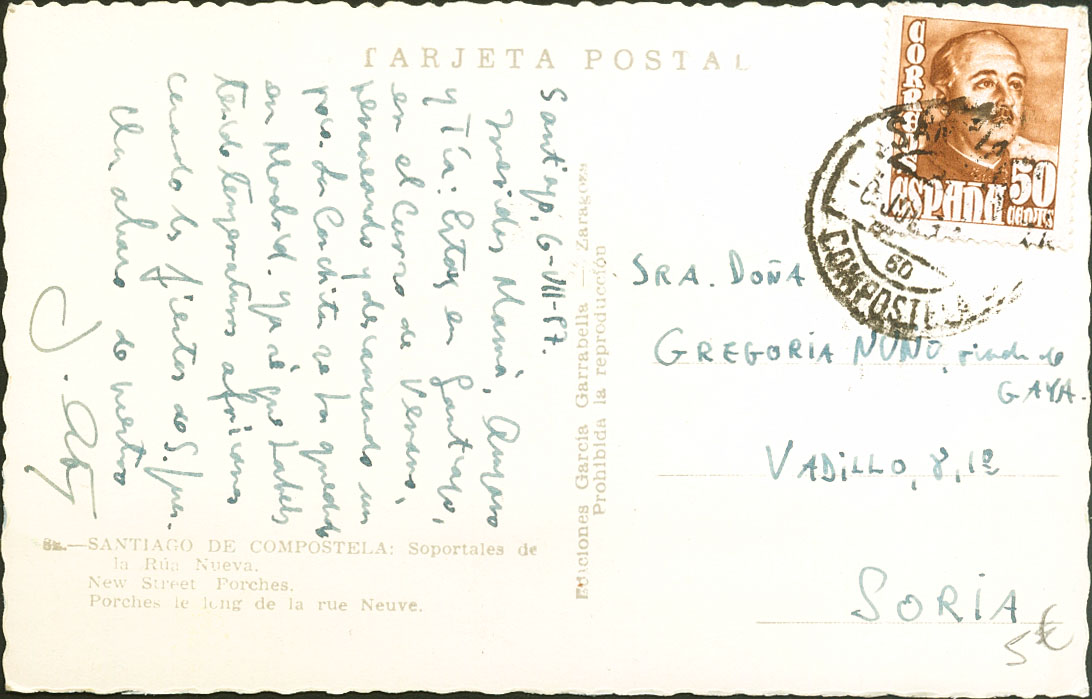 TARJETA POSTAL
Santiago, 6-VII-57.
Queridos Mamá, Amparo
y Tía: Estoy en Santiago,
en el Curso de Verano,
veraneando y descansando un
poco. La Conchita se ha quedado
en Madrid. Ya sé que habéis
tenido temperaturas africanas
cuando las fiestas de S. Juan.
Un abrazo de vuestro
J. A.
82.—SANTIAGO DE COMPOSTELA: Soportales de
la Rúa Nueva.
New Street Porches.
Porches le long de la rue Neuve.
Ediciones García Garrabella — Zaragoza
Prohibida la reproducción
CORREOS
ESPAÑA
50
CENTS
COMPOSTELA
SRA. DOÑA
GREGORIA NUÑO, viuda de
GAYA.
VADILLO, 8, 1º
SORIA
5 €